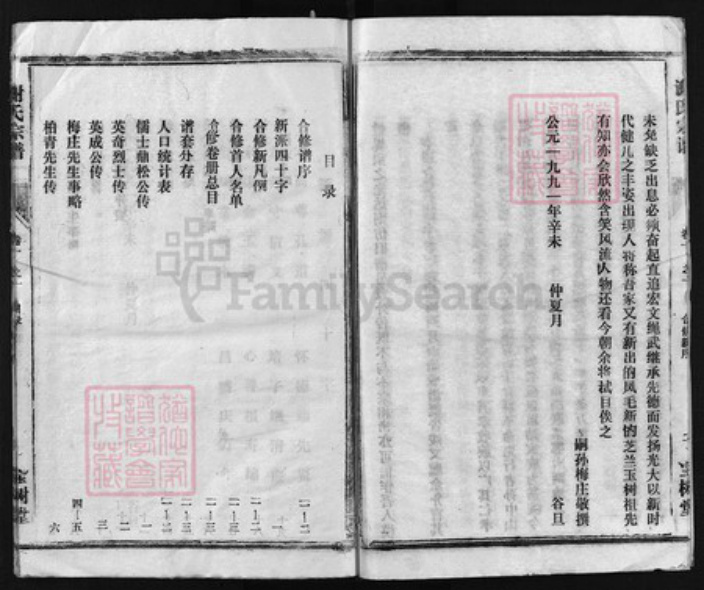 未免缺乏出息必须奋起直追宏文绳武继承先德而发扬光大以新时
代健儿之丰姿出现人将称吾家又有新出的凤毛新的芝兰玉树祖先
有知亦会欣然含笑风流人物还看今朝余将拭目俟之
嗣孙梅庄敬撰
公元一九九一年辛未 仲夏月 谷旦
目录
合修谱序 一—二
新派四十字 一
合修新凡例 一—二
合修首人名单 一—三
合修卷册总目
谱套外存
人口统计表 一—二
儒士鼎松公传 一
英奇烈士传 二
英成公传 三
梅庄先生事略 四—五
柏青先生传 六
谢氏宗谱
玉树堂
FamilySearch